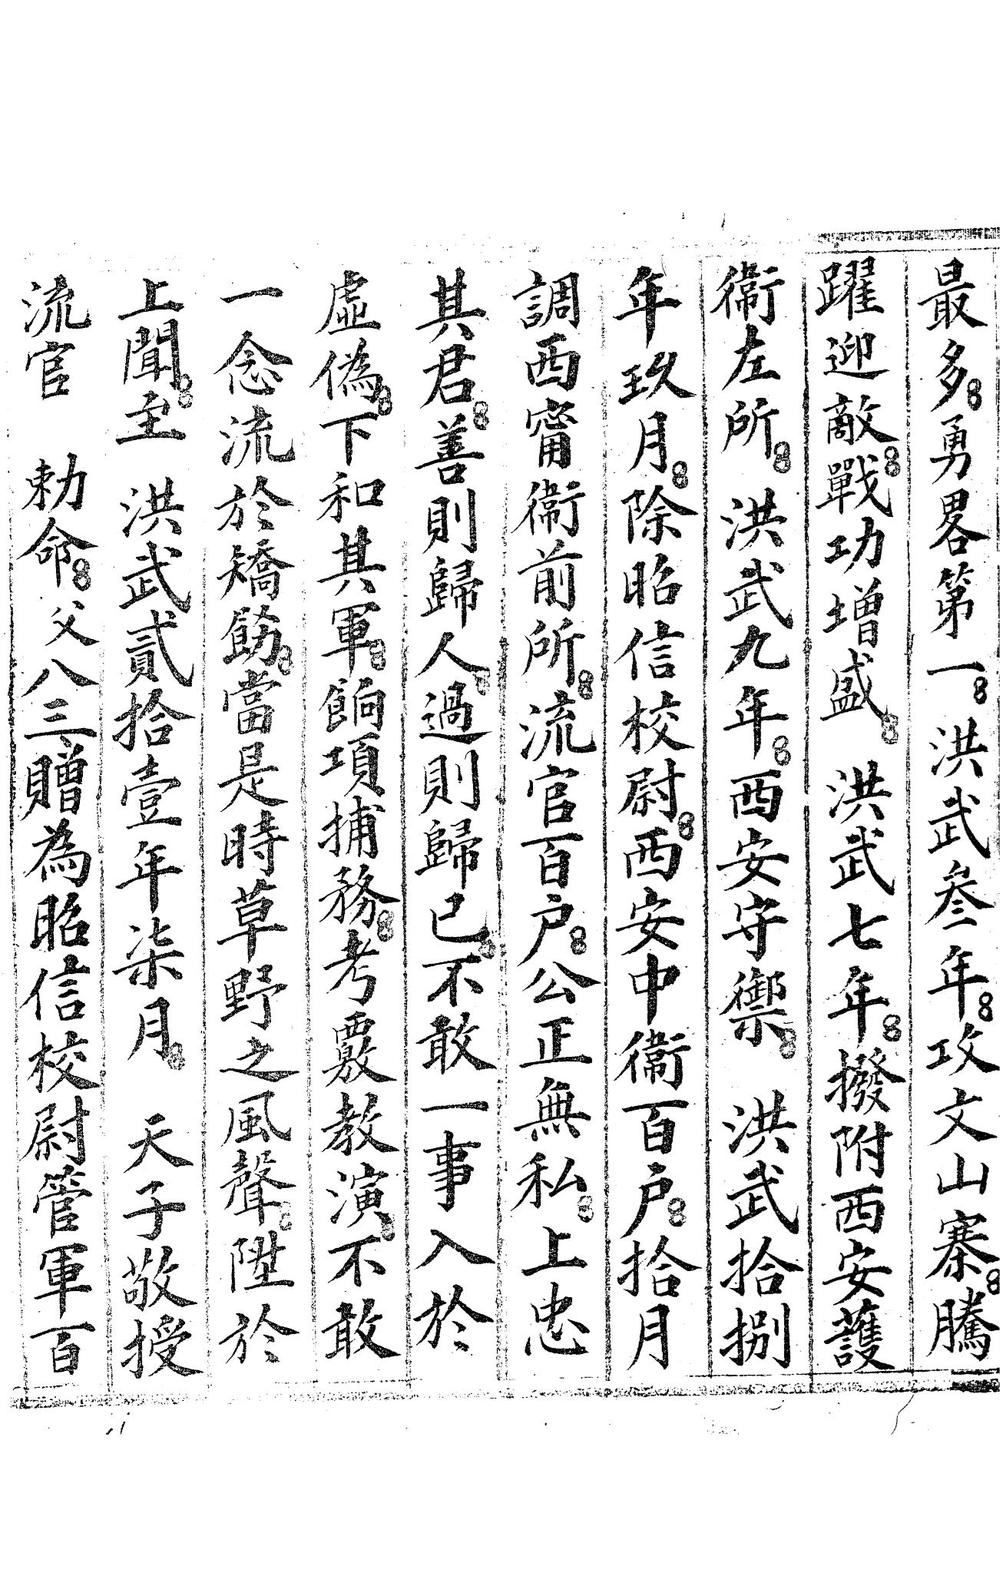 最多勇畧第一 洪武叄年攻文山寨騰
躍迎敵戰功增盛 洪武七年撥附西安護
衞左所 洪武九年西安守禦 洪武拾捌
年玖月除昭信校尉西安中衞百户拾月
調西甯衞前所流官百户公正無私上忠
其君善則歸人過則歸已不敢一事入於
虛偽下和其軍餉項捕務考覈教演不敢
一念流於矯飭當是時草野之風聲陞於
上聞至 洪武貳拾壹年柒月 天子敬授
流官 勅命父八三贈為昭信校尉管軍百